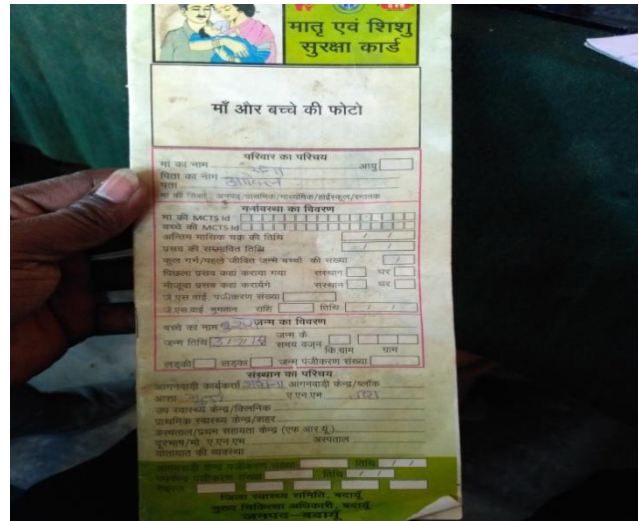 मातृ एवं शिशु
सुरक्षा कार्ड
माँ और बच्चे की फोटो
परिवार का परिचय
मां का नाम आयु
पिता का नाम
पता
मां की शिक्षा: अनपढ़/प्राथमिक/माध्यमिक/हाईस्कूल/स्नातक
गर्भावस्था का विवरण
मां की MCTS Id
बच्चे की MCTS Id
अन्तिम मासिक चक्र की तिथि / /
प्रसव की सम्भावित तिथि / /
कुल गर्भ/पहले जीवित जन्मे बच्चों की संख्या /
पिछला प्रसव कहां कराया गया संस्थान घर
मौजूदा प्रसव कहां करायेंगे संस्थान घर
जे.एस.वाई. पंजीकरण संख्या
जे.एस.वाई भुगतान राशि तिथि / /
जन्म का विवरण
बच्चे का नाम
जन्म तिथि जन्म के समय वजन कि.ग्राम ग्राम
लड़की लड़का जन्म पंजीकरण संख्या
संस्थान का परिचय
आंगनवाड़ी कार्यकर्ता आंगनवाड़ी केन्द्र/ब्लॉक
आशा ए.एन.एम
उप स्वास्थ्य केन्द्र/क्लिनिक
प्राथमिक स्वास्थ्य केन्द्र/शहर
अस्पताल/प्रथम सहायता केन्द्र (एफ.आर.यू.)
दूरभाष/मो. ए.एन.एम अस्पताल
यातायात की व्यवस्था
आंगनवाड़ी केन्द्र पंजीकरण संख्या तिथि / /
पंजीकरण संख्या तिथि / /
जिला स्वास्थ्य समिति, बदायूँ
मुख्य चिकित्सा अधिकारी, बदायूँ
जनपद-बदायूँ